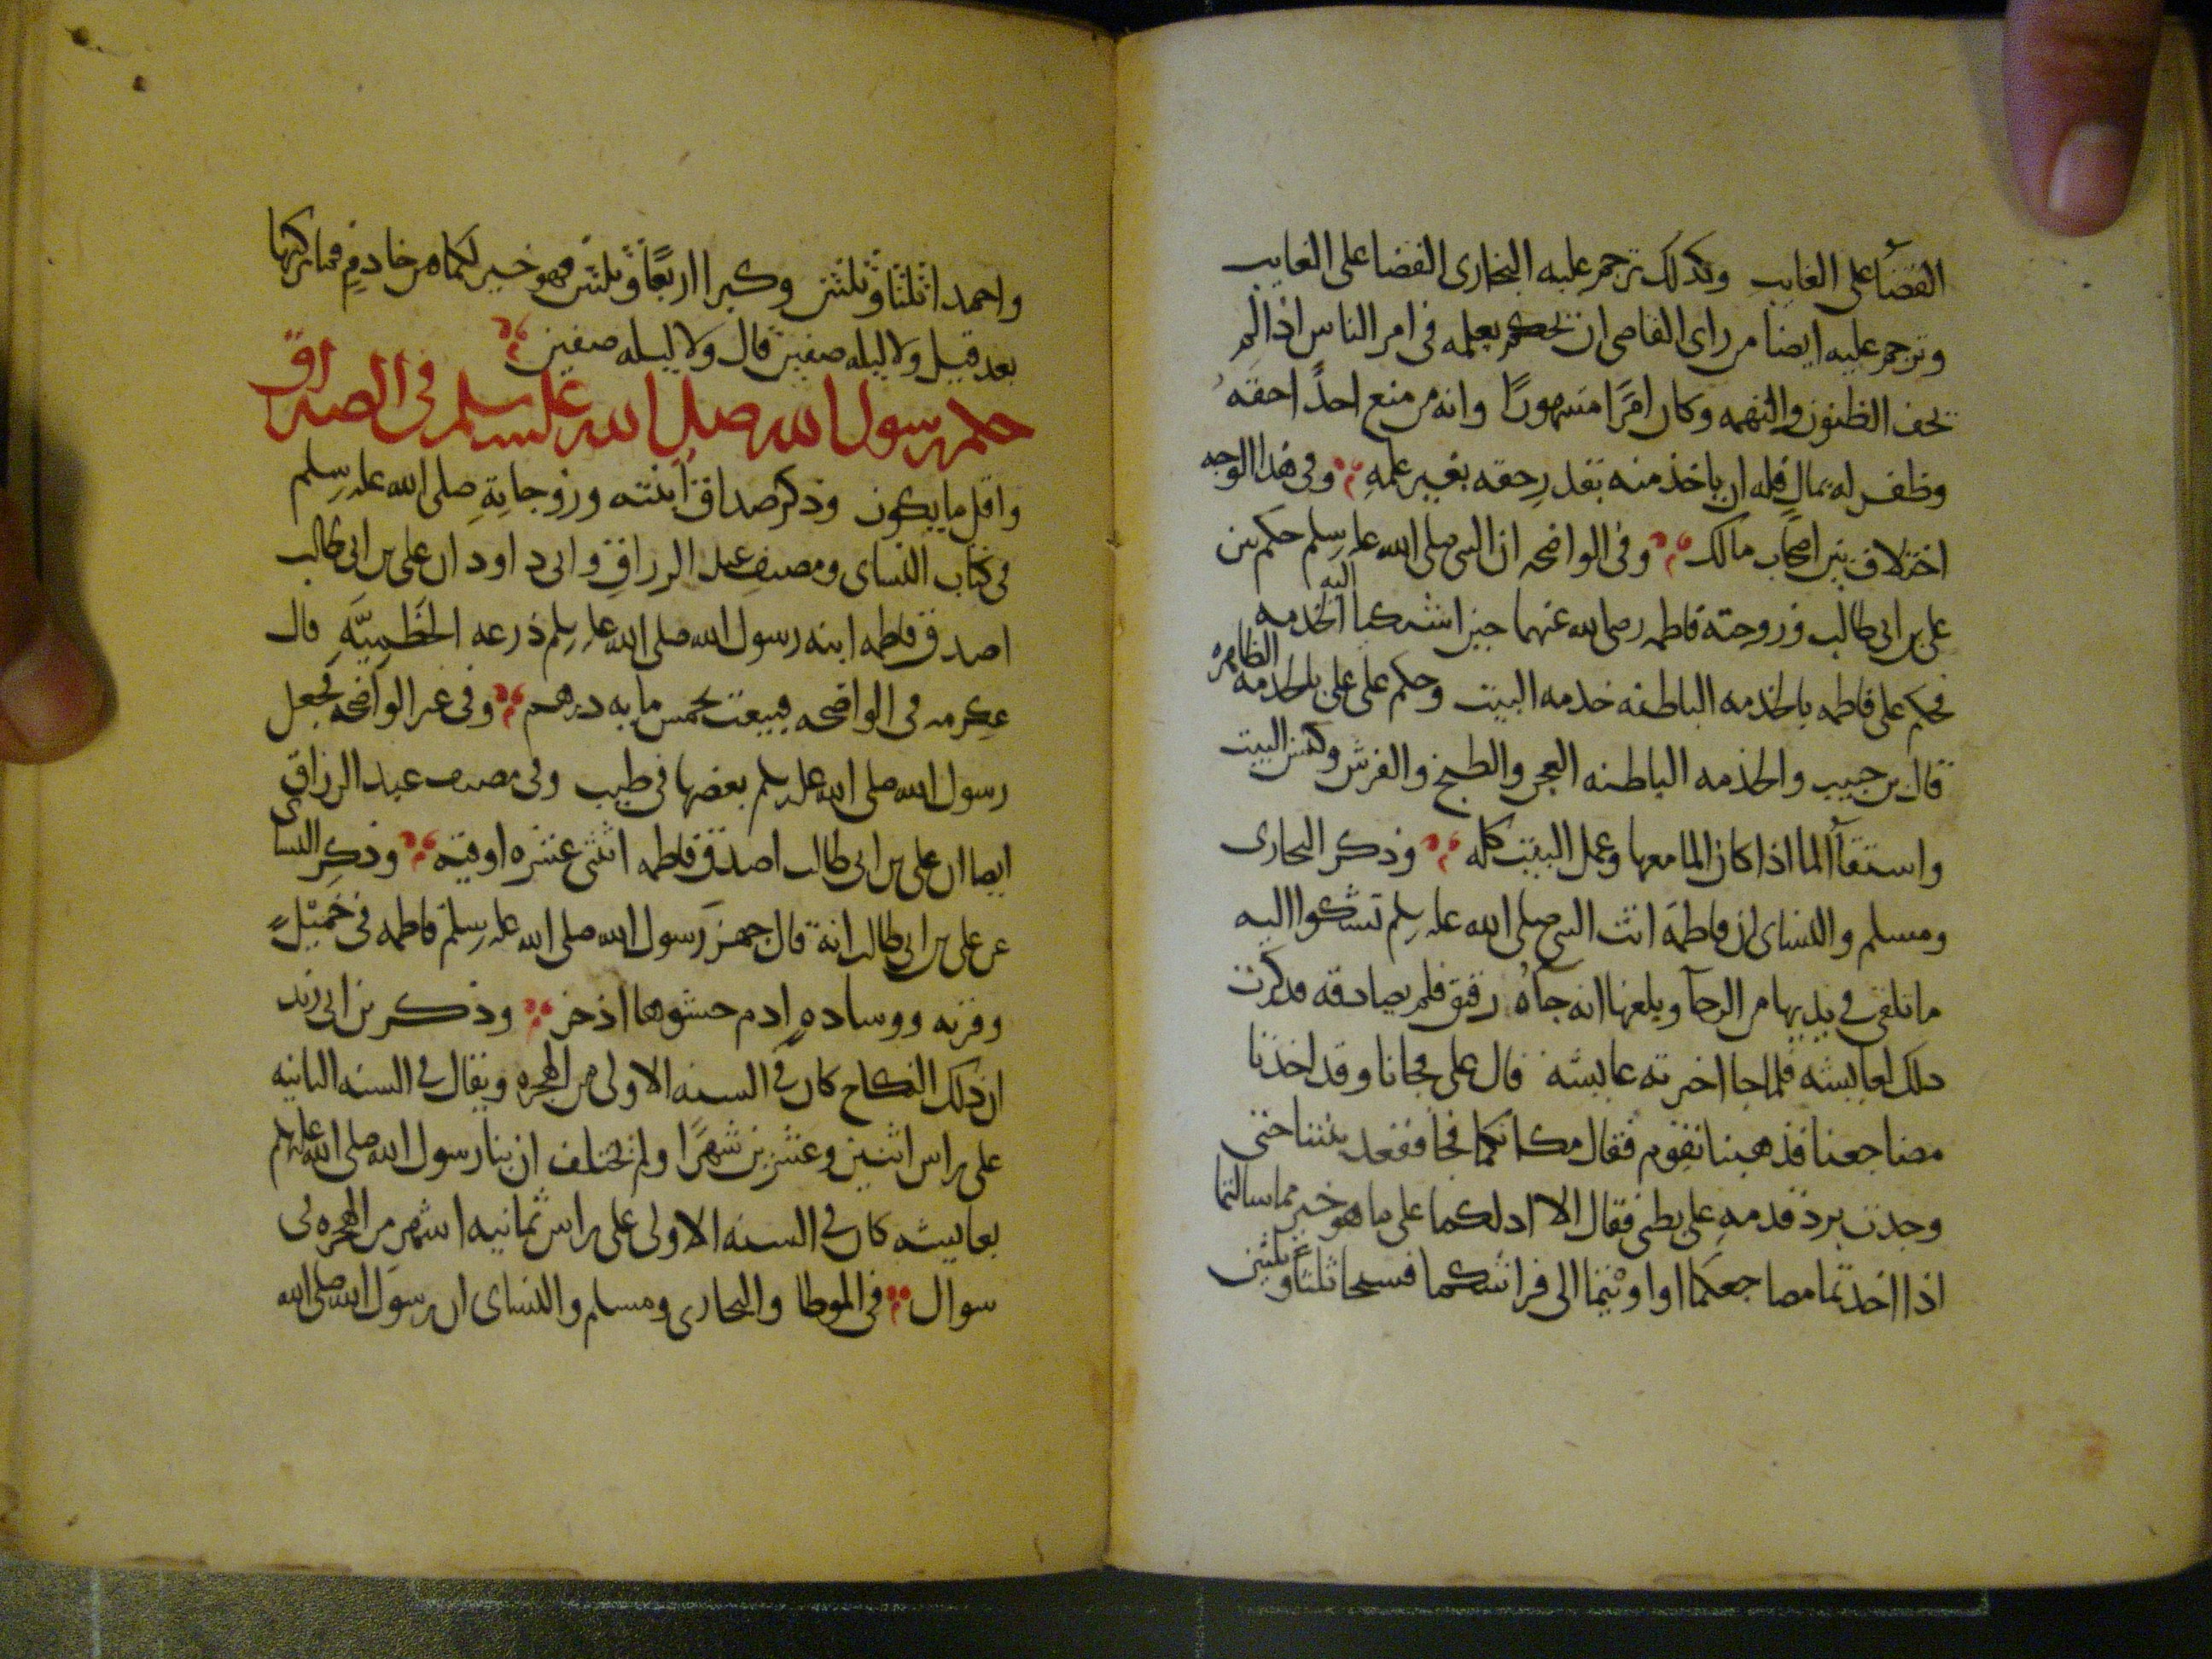 القضآ على الغايب وكذلك ترجم عليه البخارى القضا على الغايب
وترجم عليه ايضا من راى القاضى ان يحكم بعلمه فى امر الناس اذا لم
يخف الظنون والتهمه وكان امرًا مشهورًا وانه من منع احدًا حقه
وظفر له بمالٍ فله ان ياخذ منه بقدرِ حقه بغير علمهِ وفى هذا الوجه
اختلاف بين اصحاب مالك وفى الواضحه ان النبى صلى الله عليه سلم حكم بين
على بن ابى طالب وزوجته فاطمه رضى الله عنهما حين اشتكيا اليه الخدمه
فحكم على فاطمه بالخدمه الباطنه خدمه البيت وحكم على على بالخدمه الظاهره
قال بن حبيب والخدمه الباطنه العجن والطبخ والفرش وكنس البيت
واستقآ الما اذا كان الما معها وعمل البيت كله وذكر البخارى
ومسلم والنساى ان فاطمة اتت النبى صلى الله عليه سلم تشكوا اليه
ما تلقى فى يديها من الرحآ وبلغها انه جآه رقيق فلم يصادفه فذكرت
ذلك لعايشه فلما جا اخبرته عايشه قال على فجانا وقد اخذنا
مضاجعنا فذهبنا نقوم فقال مكانكما فجا فقعد بيننا حتى
وجدت برد قدمه على بطنى فقال الا ادلكما على ما هو خير مما سالتما
اذا اخذتما مضاجعكما او اويتما الى فراشكما فسبحا ثلثًا وثلثين
واحمدا ثلثًا وثلثين وكبرا اربعًا وثلثين فهو خير لكما من خادمٍ فما تركتها
بعد قيل ولا ليله صفين قال ولا ليله صفين
حكم رسول الله صلى الله عليه سلم فى الصداق
واقل ما يكون وذكر صداق ابنته وزوجاته صلى الله عليه سلم
فى كتاب النساى ومصنف عبد الرزاق وابى داود ان على بن ابى طالب
اصدق فاطمه ابنه رسول الله صلى الله عليه سلم درعه الحُطَمِيَّه قال
عكرمه فى الواضحه فبيعت بخمس مايه درهم وفى غير الواضحه فجعل
رسول الله صلى الله عليه سلم بعضها فى طيب وفى مصنف عبد الرزاق
ايضا ان على بن ابى طالب اصدق فاطمه اثنتى عشره اوقيه وذكر النساى
عن على بن ابى طالب انه قال جهز رسول الله صلى الله عليه سلم فاطمه فى خميلٍ
وقربه ووساده ادم حشوها اذخر وذكر بن ابى زيد
ان ذلك النكاح كان فى السنه الاولى من الهجره ويقال فى السنه الثانيه
على راس اثنين وعشرين شهرًا ولم يختلف ان بنا رسول الله صلى الله عليه سلم
بعايشه كان فى السنه الاولى على راس ثمانيه اشهر من الهجره فى
شوال فى الموطا والبخارى ومسلم والنساى ان رسول الله صلى الله